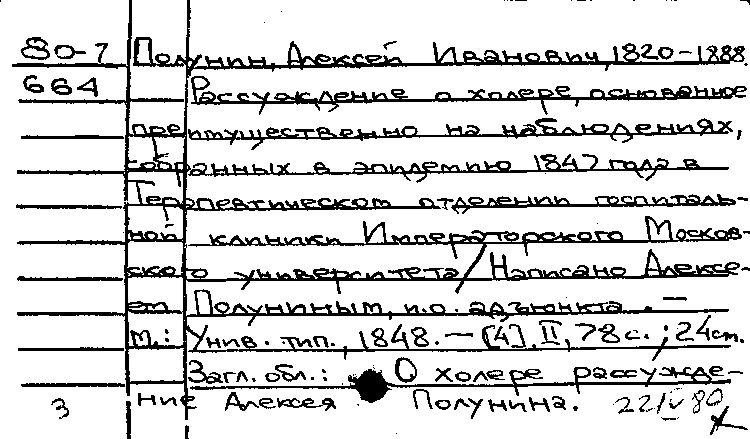 80-7 Полунин, Алексей Иванович, 1820-1888.
664 Рассуждение о холере, основанное
преимущественно на наблюдениях,
собранных в эпидемию 1847 года в
Терапевтическом отделении госпиталь-
ной клиники Императорского Москов-
ского университета/ Написано Алексе-
ем Полуниным, и.о. адъюнкта. —
М.: Унив. тип., 1848. — [4], II, 78 с.; 24 cm.
Загл. обл.: О холере рассужде-
3 ние Алексея Полунина. 22/V 80